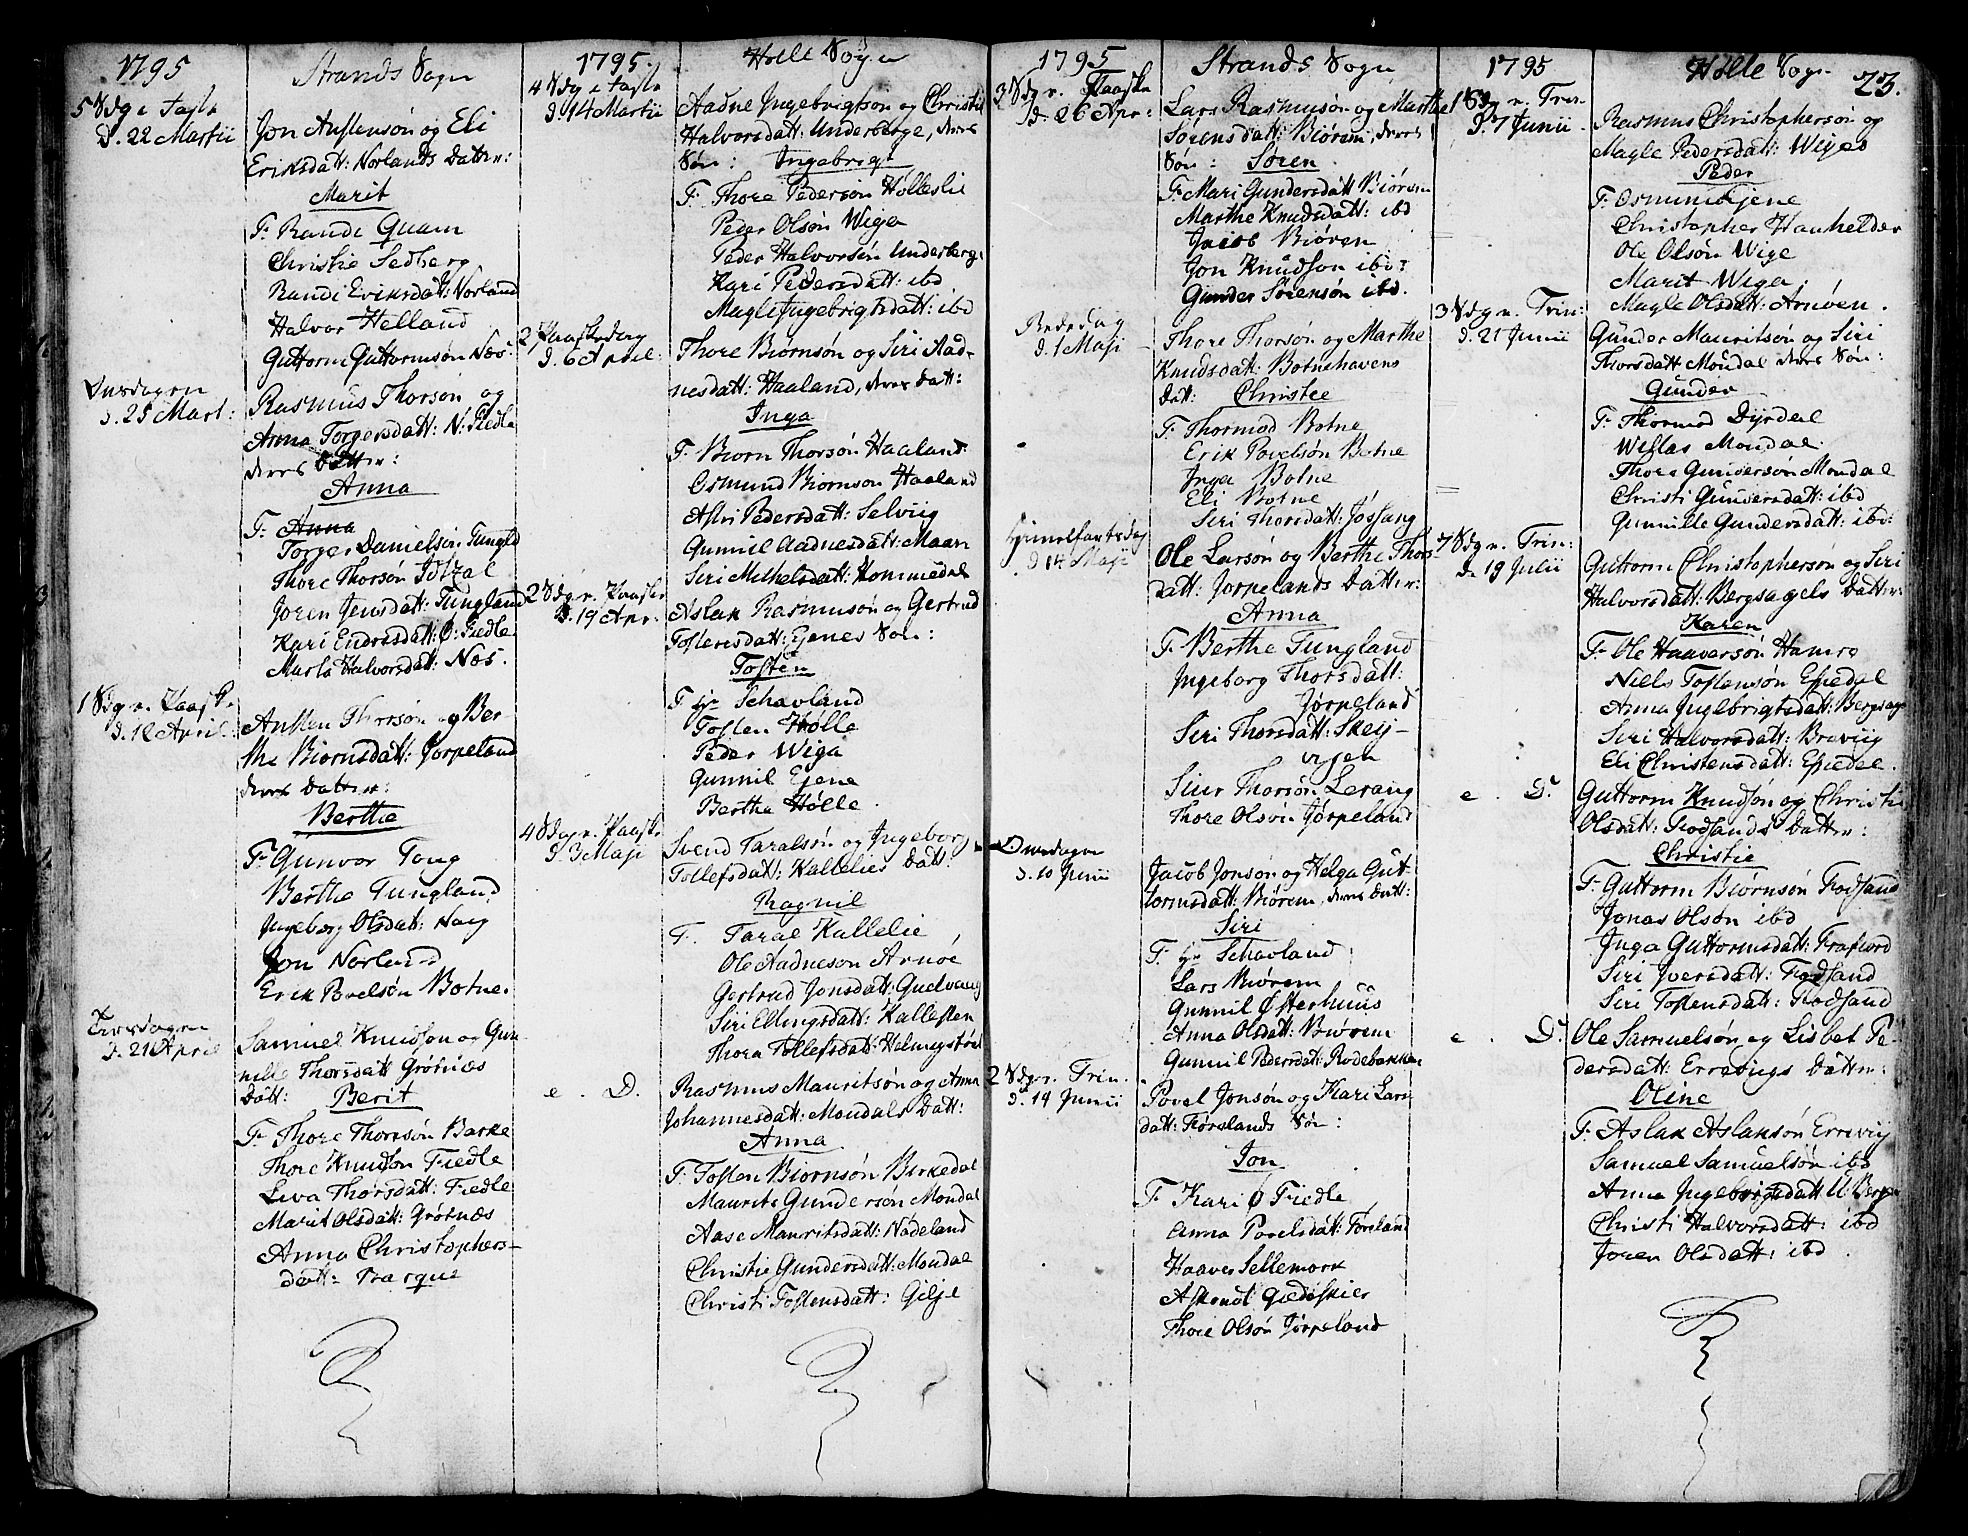 1795
Strands Sogn
5 Sdg i Faste
d. 22 Martii
Jon Austensøn og Eli
Eriksdatt: Norlands Datter:
Marit
F. Randi Quam
Christie Sedberg
Randi Eriksdatt: Norland
Halvor Helland
Guttorm Guttormsøn Nøs
Onsdagen
d. 25 Mart:
Rasmus Thorsøn og
Anna Torgersdatt: N: Fiedle
deres Datter:
Anna
F. Anna
Torger Danielsøn Tungld
Thore Thorsøn Idtzal
Joren Jensdatt: Tungland
Kari Endresdatt: Ø: Fiedle
Marta Halvorsdatt: Nøs.
1 Sdg n. Paaske
d. 12 April
Austen Thorsøn og Ber-
the Biørnsdatt: Jørpeland
deres Datter:
Berthe
F. Gunvor Tong
Berthe Tungland
Ingeborg Olsdatt: Haug
Jon Norland
Erik Povelsøn Botne.
Tirsdagen
d. 21 April
Samuel Knudsøn og Gun-
nille Thorsdatt Grøtnøs
Datt: Berit
F. Thore Thorsøn Barke
Thore Knudson Fiedle
Liva Thorsdatt: Fiedle
Marit Olsdatt: Grøtnøs
Anna Christophers-
datt: Tarque
1795.
Holle Sogn
4 Sdg i Faste
d. 14 Martii
Aadne Ingebrigtsøn og Christi
Halvorsdatt: Underberge, deres
Søn: Ingebrigt
F. Thore Pedersøn Hølleslie
Peder Olsøn Wiga
Peder Halvorsøn Underberge
Kari Pedersdatt: ibd
Magle Ingebrigtsdatt: ibd
2 Paaskedag
d. 6 April:
Thore Biørnsøn og Siri Aad-
nesdatt: Haaland, deres Datt:
Inga
F. Biørn Thorsøn Haaland
Osmund Biørnsøn Haaland
Astri Pedersdatt: Selviig
Gunnil Aadnesdatt: Maan
Siri Michelsdatt: Hommedal
2 Sdg n. Paaske
d. 19 Apr:
Aslak Rasmusøn og Gertrud
Tostensdatt: Ejenes Søn:
Tosten
F. Hr Schavland
Tosten Hølle
Peder Wiga
Gunnil Ejene
Bertha Hølle.
4 Sdg n. Paaske
d. 3 Maji
Svend Taralsøn og Ingeborg
Tollefsdatt: Kallelies Datt:
Ragnil
F. Taral Kallelie
Ole Aadnesøn Arnøe
Gertrud Jonsdatt: Gudvang
Siri Ellingsdatt: Kallesten
Thora Tollefsdatt: Helmigstøel
e . D.
Rasmus Mauritsøn og Anna
Johannesdatt: Mondals Datt:
Anna
F. Tosten Biørnsøn Birkedal
Maurits Gundersøn Mondal
Aase Mauritsdatt: Nødeland
Christie Gundersdatt: Mondal
Christi Tostensdatt: Gilje
1795
Strands Sogn
3 Sdg n. Paaske
d. 26 Apr:
Lars Rasmusøn og Marthe
Sørensdatt: Biørøm, deres
Søn: Søren
F. Mari Gundersdatt Biørøm
Marthe Knudsdatt: ibd
Jacob Biøren
Jon Knudson ibd:
Gunder Sørensøn ibd.
Bededag
d. 1 Maji
Thore Thorsøn og Marthe
Knudsdatt: Botnehavens
Datt: Christie
F. Thormod Botne
Erik Povelsøn Botne
Inga Botne
Eli Botne
Siri Thorsdatt: Jøssang
Himelfartsdag
d 14 Maji
Ole Larsøn og Berthe Thors-
datt: Jørpelands Datter:
Anna
F. Berthe Tungland
Ingeborg Thorsdatt:
Jørpeland
Siri Thorsdatt: Skej-
vigen
Siur Thorsøn Lerang
Thore Olsøn Jørpeland
Onsdagen
d. 10 Junii
Jacob Jonsøn og Helga Gut-
tormsdatt: Biørem, deres Datt:
Siri
F. Hr Schavland
Lars Biørem
Gunnil Østerhuus
Anna Olsdatt: Biørem
Gunnil Pedersdatt: Rodebakken
2 Sdg n. Trin.
d. 14 Junii
Povel Jonsøn og Kari Lars
datt: Førelands Søn:
Jon
F Kari Ø Fiedle
Anna Povelsdatt: Føreland
Haaver Sellemork
Askendt Giediskier
Thore Olsøn Jørpeland
1795
Hølle Sogn
23.
1 Sdg n. Trin:
d. 7 Junii
Rasmus Christophersøn og
Magle Pedersdatt: Wiges
Peder
F. Osmund Ejene
Christopher Hauhelder
Ole Olsøn Wige
Marit Wiga
Magle Olsdatt: Arnøen.
3 Sdg n. Trin:
d. 21 Junii
Gunder Mauritsøn og Siri
Thorsdatt Mondal deres Søn:
Gunder
F. Thormod Dyrdal
Wettas Mondal
Thore Gundersøn Mondal
Christi Gundersdatt: ibd
Gunnille Gundersdatt: ibd:
7 Sdg n. Trin:
d. 19 Julii
Guttorm Christophersøn og Siri
Halvorsdatt: Bergsagels Datter:
Karen
F. Ole Haaversøn Hamre
Niels Tostensøn Espedal
Anna Ingebrigtsdatt: Bergsag
Siri Halvorsdatt: Breviig
Eli Christensdatt: Espedal.
e . D.
Guttorm Knudsøn og Christi
Olsdatt: Fodsands Datter:
Christie
F. Guttorm Biørnsøn Fodsand
Jonas Olsøn ibd
Inga Guttormsdatt: Frafiord
Siri Iversdatt: Fodsand
Siri Tostensdatt: Fodsand
e . D.
Ole Samuelsøn og Lisbet Pe-
dersdatt: Erreviigs Datter:
Oline
F. Aslak Aslaksøn Erreviig
Samuel Samuelsøn ibd
Anna Ingebrigtsdatt U: Berge
Christi Halvorsdatt: ibd
Joren Olsdatt: ibd.